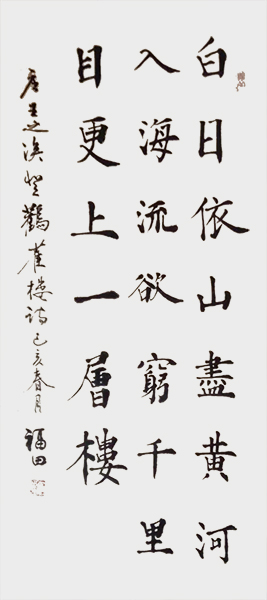 白日依山盡黄河
入海流欲窮千里
目更上一層樓
唐王之涣登鸛雀樓詩己亥春月福田